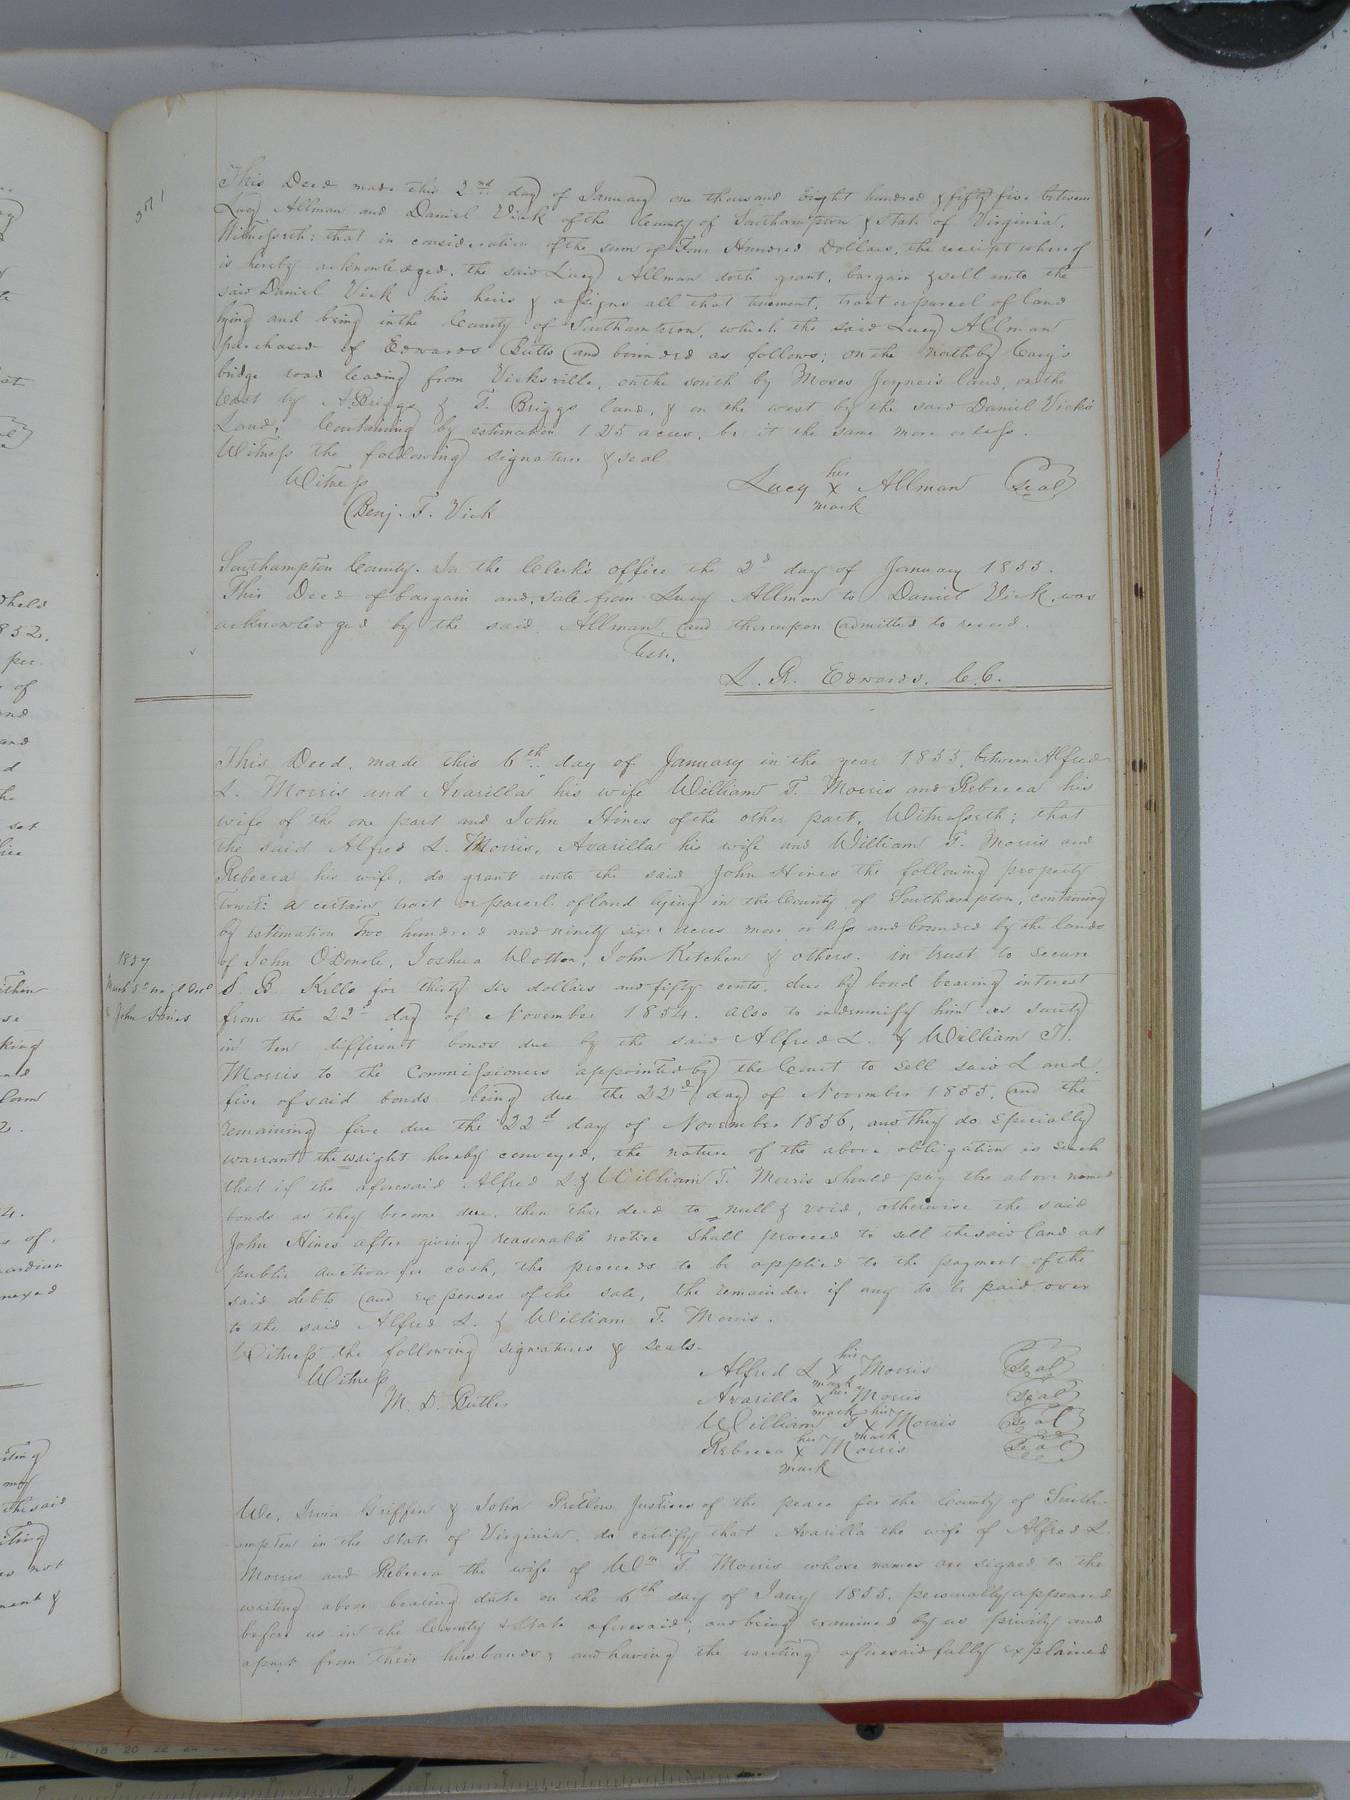 This Deed made this 2nd day of January one thousand Eight hundred & fifty five between
Lucy Allman and Daniel Vick of the County of Southampton & State of Virginia.
Witnesseth: that in consideration of the sum of Four Hundred Dollars, the receipt where of
is hereby acknowledged, the said Lucy Allman doth grant, bargain & sell unto the
said Daniel Vick his heirs & assigns all that tenement, tract or parcel of land
lying and being in the County of Southampton, which the said Lucy Allman
purchased of Edwards Butts and bounded as follows; on the north by Cary's
bridge road leading from Vicksville, on the south by Moses Joyner's land, on the
East by A. Briggs & T. Briggs land, & on the west by the said Daniel Vick's
Land, Containing by estimation 125 acres, be it the same more or less.
Witness the following signature & seal
Witness
Lucy her x mark Allman Seal
Benj. F. Vick
Southampton County. In the Clerk's office the 2d day of January 1855.
This Deed of bargain and sale from Lucy Allman to Daniel Vick, was
acknowledged by the said Allman, and thereupon admitted to record.
Teste,
L. R. Edwards, C.C.
This Deed, made this 6th day of January in the year 1855, between Alfred
L. Morris and Avarilla his wife William T. Morris and Rebecca his
wife of the one part and John Hines of the other part, Witnesseth; that
the said Alfred L. Morris, Avarilla his wife and William T. Morris and
Rebecca his wife, do grant unto the said John Hines the following property
towit: a certain tract or parcel of land lying in the County of Southampton, containing
by estimation Two hundred and ninety six acres more or less and bounded by the lands
of John O'Donele, Joshua Wotten, John Kitchen & others. in trust to secure
1857
S. B. Kello for thirty six dollars and fifty cents, due by bond bearing interest
from the 22d day of November 1854. also to indemnify him as surety
in ten different bonds due by the said Alfred L. & William T.
Morris to the Commissioners appointed by the Court to sell said Land.
five of said bonds being due the 22d day of November 1855, and the
remaining five due the 22d day of November 1856, and they do specially
warrant the wright hereby conveyed, the nature of the above obligation is such
that if the aforesaid Alfred L. & William T. Morris should pay the above named
bonds as they become due, then this deed to null & void, otherwise the said
John Hines after giving reasonable notice shall proceed to sell the said land at
public auction for cash, the proceeds to be applied to the payment of the
said debts and expenses of the sale, the remainder if any to be paid over
to the said Alfred L. & William T. Morris.
Witness the following signatures & seals.
Witness
Alfred L his x mark Morris Seal
M. D. Butler
Avarilla her x mark Morris Seal
William T his x mark Morris Seal
Rebecca her x mark Morris Seal
We, Irvin Griffin & John Pretlow Justices of the peace for the County of South-
ampton in the State of Virginia, do certify that Avarilla the wife of Alfred L.
Morris and Rebecca the wife of Wm T. Morris whose names are signed to the
writing above bearing date on the 6th day of Jany 1855, personally appeared
before us in the County & State aforesaid, and being examined by us privily and
apart from their husbands, and having the writing aforesaid fully explained